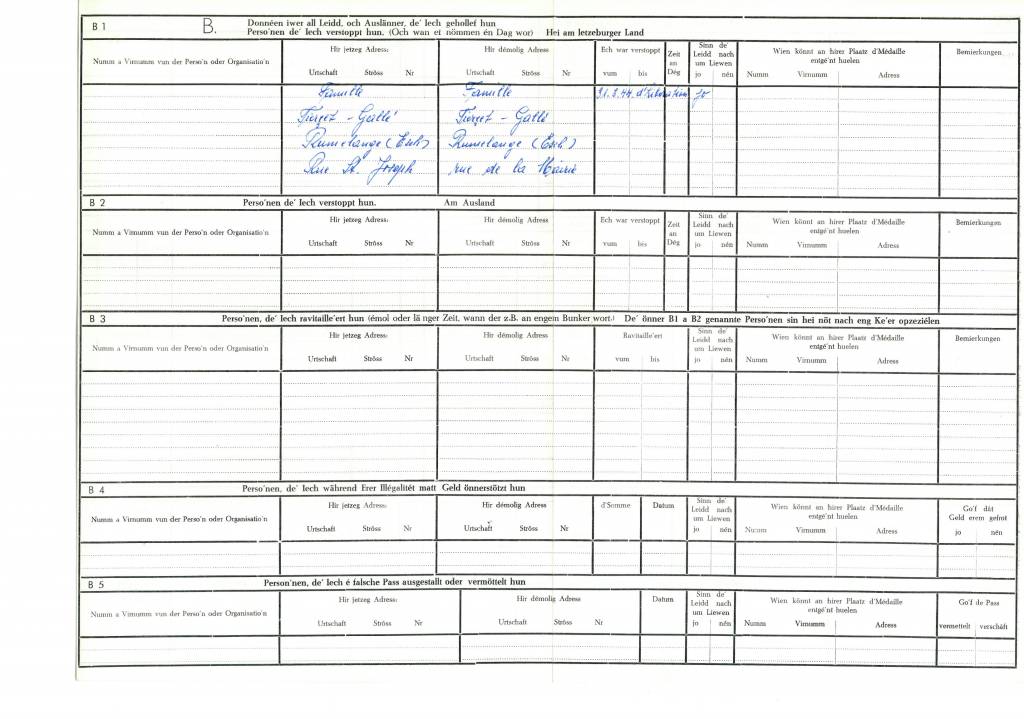 B 1 B. Donnéen iwer all Leidd, och Auslänner, de' Iech gehollef hun
Perso'nen de' Iech verstoppt hun. (Och wan et nömmen én Dag wor) Hei am letzeburger Land
Numm a Virnumm vun der Perso'n oder Organisatio'n Hir jetzeg Adress: Hir démolig Adress Ech war verstoppt Zeit an Dég Sinn de' Leidd nach um Liewen Wien könnt an hirer Plaatz d'Médaille entgé'nt huelen Bemierkungen
Urtschaft Ströss Nr Urtschaft Ströss Nr vum bis jo nén Numm Virnumm Adress
Famille Famille d'libération jo
Turpet - Gallé Turpet - Gallé
Rumelange (Esch) Rumelange (Esch)
Rue St. Joseph rue de la Mairie
B 2 Perso'nen de' Iech verstoppt hun. Am Ausland
Numm a Virnumm vun der Perso'n oder Organisatio'n Hir jetzeg Adress: Hir démolig Adress Ech war verstoppt Zeit an Dég Sinn de' Leidd nach um Liewen Wien könnt an hirer Plaatz d'Médaille entgé'nt huelen Bemierkungen
Urtschaft Ströss Nr Urtschaft Ströss Nr vum bis jo nén Numm Virnumm Adress
B 3 Perso'nen, de' Iech ravitaille'ert hun (émol oder länger Zeit, wann der z.B. an engem Bunker wort.) De' önner B1 a B2 genannte Perso'nen sin hei nöt nach eng Ke'er opzeziélen
Numm a Virnumm vun der Perso'n oder Organisatio'n Hir jetzeg Adress: Hir démolig Adress Ravitaille'ert Sinn de' Leidd nach um Liewen Wien könnt an hirer Plaatz d'Médaille entgé'nt huelen Bemierkungen
Urtschaft Ströss Nr Urtschaft Ströss Nr vum bis jo nén Numm Virnumm Adress
B 4 Perso'nen, de' Iech während Erer Illégalitét matt Geld önnerstötzt hun
Numm a Virnumm vun der Perso'n oder Organisatio'n Hir jetzeg Adress: Hir démolig Adress d'Somme Datum Sinn de' Leidd nach um Liewen Wien könnt an hirer Plaatz d'Médaille entgé'nt huelen Go'f dât Geld erem gefrot
Urtschaft Ströss Nr Urtschaft Ströss Nr jo nén Numm Virnumm Adress jo nén
B 5 Person'nen, de' Iech é falsche Pass ausgestallt oder vermöttelt hun
Numm a Virnumm vun der Perso'n oder Organisatio'n Hir jetzeg Adress: Hir démolig Adress Datum Sinn de' Leidd nach um Liewen Wien könnt an hirer Plaatz d'Médaille entgé'nt huelen Go'f de Pass
Urtschaft Ströss Nr Urtschaft Ströss Nr jo nén Numm Virnumm Adress vermettelt verschâft